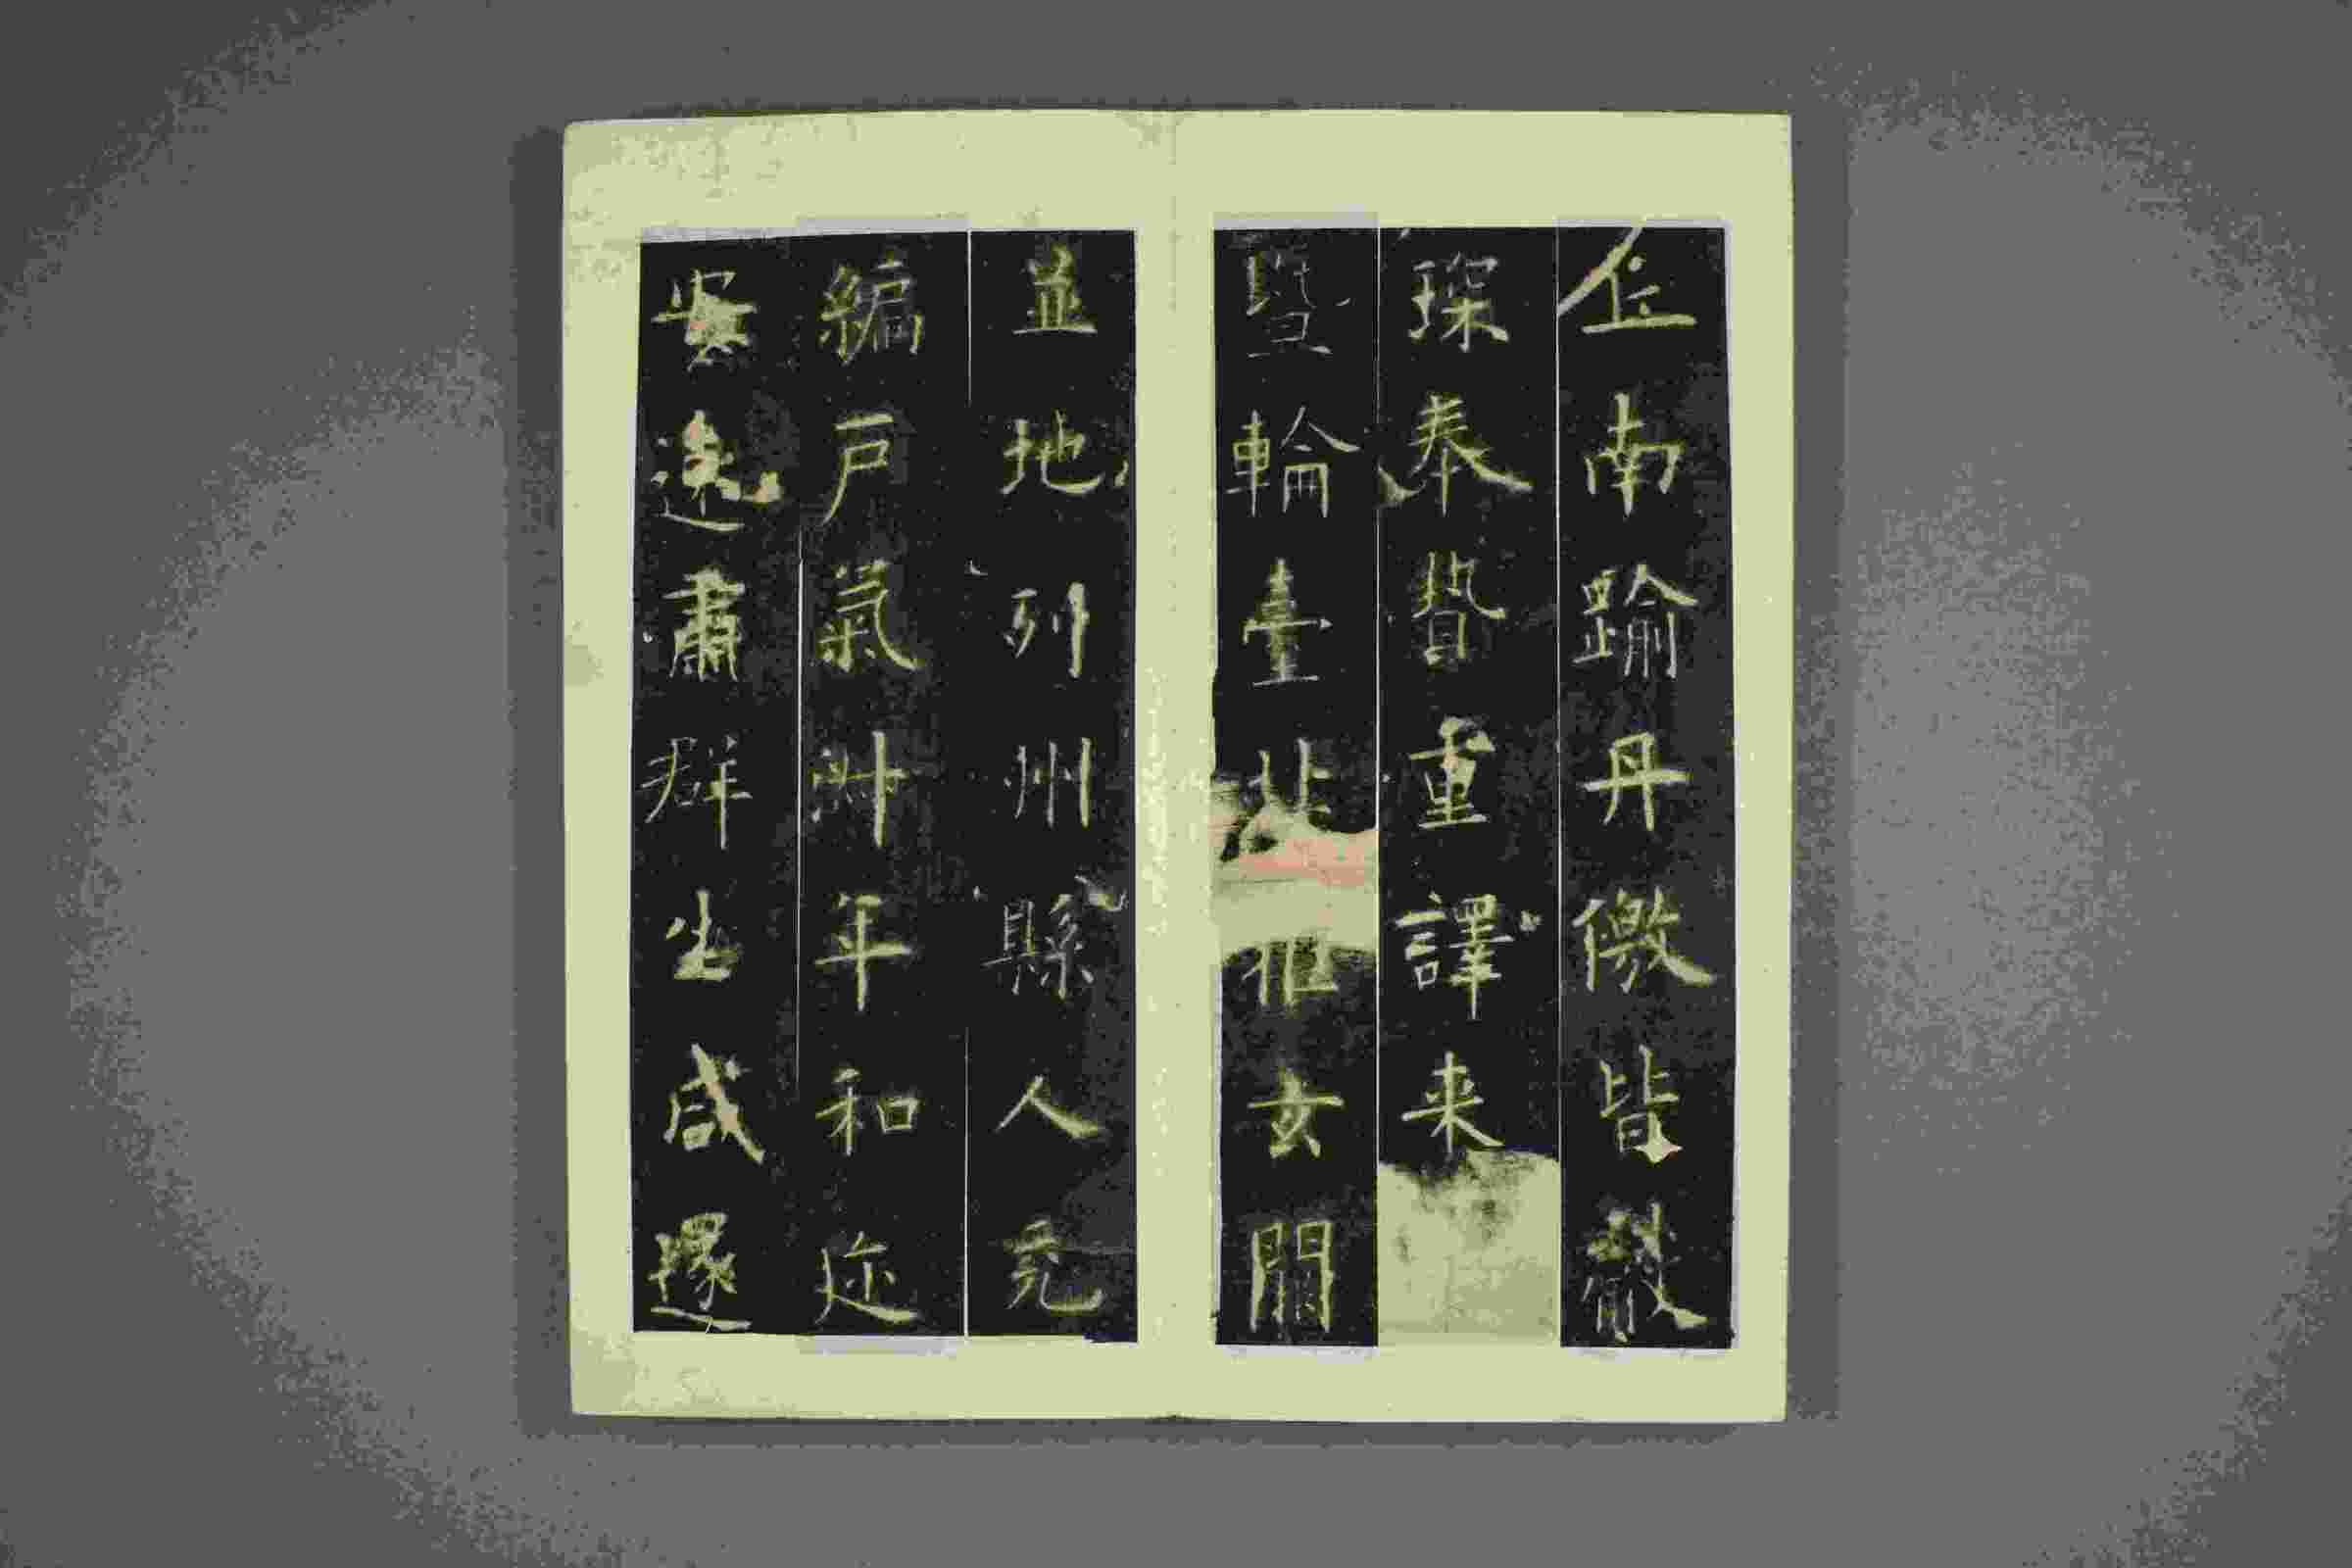 丘南踰丹徼皆獻
琛奉贄重譯来
暨輪臺北拒玄闕
並地列州縣人充
編戶氣淑年和迩
安遠肅群生咸遂